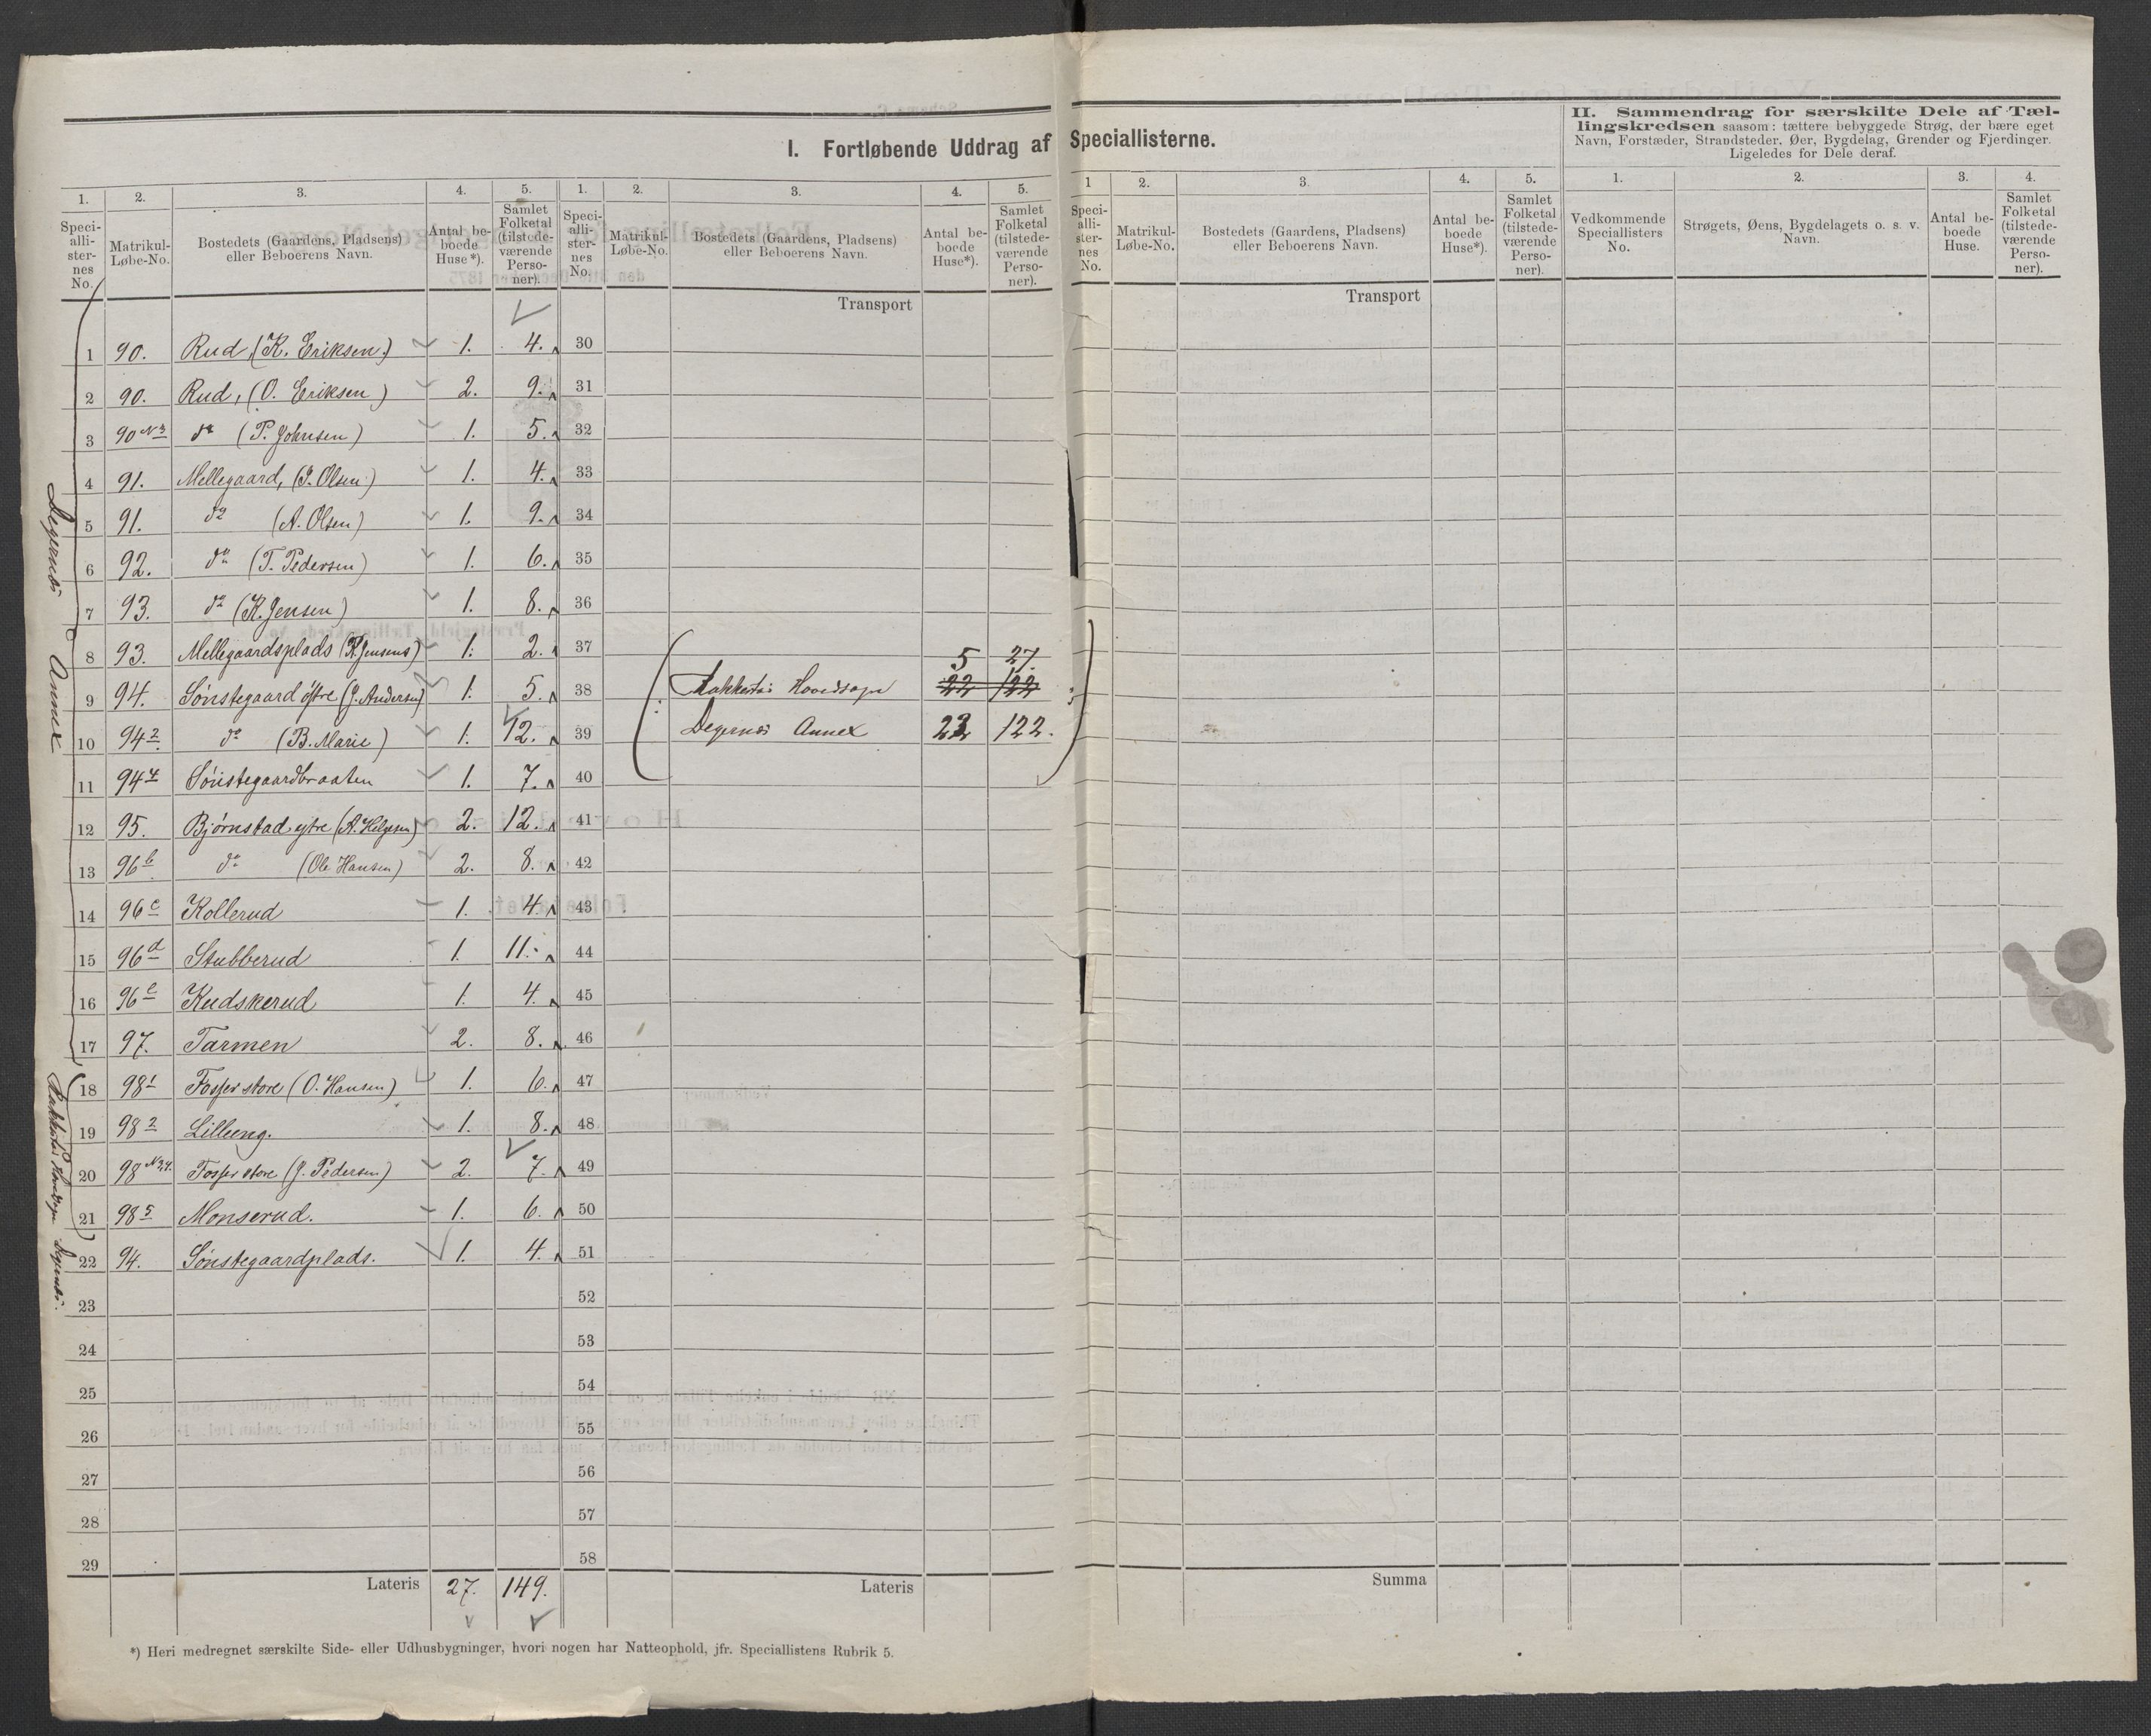 I. Fortløbende Uddrag af Speciallisterne.
II. Sammendrag for særskilte Dele af Tæl-
lingskredsen saasom: tættere bebyggede Strøg, der bære eget
Navn, Forstæder, Strandsteder, Øer, Bygdelag, Grender og Fjerdinger.
Ligeledes for Dele deraf.
1. 2. 3. 4. 5. 1. 2. 3. 4. 5. 1 2. 3. 4. 5. 1. 2. 3. 4.
Speci-alli-ster-nes No. Matrikul-Løbe-No. Bostedets (Gaardens, Pladsens) eller Beboerens Navn. Antal be-boede Huse*). Samlet Folketal (tilstede-værende Perso-ner).
Speci-alli-ster-nes No. Matrikul-Løbe-No. Bostedets (Gaardens, Pladsens) eller Beboerens Navn. Antal be-boede Huse*). Samlet Folketal (tilstede-værende Perso-ner).
Speci-alli-ster-nes No. Matrikul-Løbe-No. Bostedets (Gaardens, Pladsens) eller Beboerens Navn. Antal be-boede Huse*). Samlet Folketal (tilstede-værende Perso-ner).
Vedkommende Speciallisters No. Strøgets, Øens, Bygdelagets o. s. v. Navn. Antal be-boede Huse. Samlet Folketal (tilstede-værende Perso-ner).
Transport Transport
1 90. Rud, (K. Eriksen) 1. 4. 30
2 90. Rud, (O. Eriksen) 2. 9. 31
3 90 No 3 do (P. Johnsen) 1. 5. 32
4 91. Mellegaard, (J. Olsen) 1. 4. 33
5 91. do (A. Olsen) 1. 9. 34
6 92. do (T. Pedersen) 1. 6. 35
7 93. do (K. Jensen) 1. 8. 36
8 93. Mellegaardsplads (K. Jensens) 1. 2. 37
5 27.
9 94. Sønstegaard østre (J. Andersen) 1. 5. 38 Rakkestad Hovedsogn 22 122
10 94 2 do (B. Marie) 1. 12. 39 Degernæs Annex 22 122.
11 94 4 Sønstegaardbraaten 1. 7. 40
12 95. Bjørnstad ytre (A. Helgesen) 2. 12. 41
13 96 b do (Ole Hansen) 2. 8. 42
14 96 c Kollerud 1. 4. 43
15 96 d Stubberud 1. 11. 44
16 96 e Kudskerud 1. 4. 45
17 97. Tarmen 2. 8. 46
18 98 1 Fosser store (O. Hansen) 1. 6. 47
19 98 2 Lilleeng. 1. 8. 48
20 98 No 3,4. Fosser store (J. Pedersen) 2. 7. 49
21 98 5 Monserud. 1. 6. 50
22 94. Sønstegaardplads. 1. 4. 51
23 52
24 53
25 54
26 55
27 56
28 57
29 58
Lateris 27. 149. Lateris Summa
*) Heri medregnet særskilte Side- eller Udhusbygninger, hvori nogen har Natteophold, jfr. Speciallistens Rubrik 5.
Degernæs Annex
Rakkestad Hovedsogn
Degernæs.